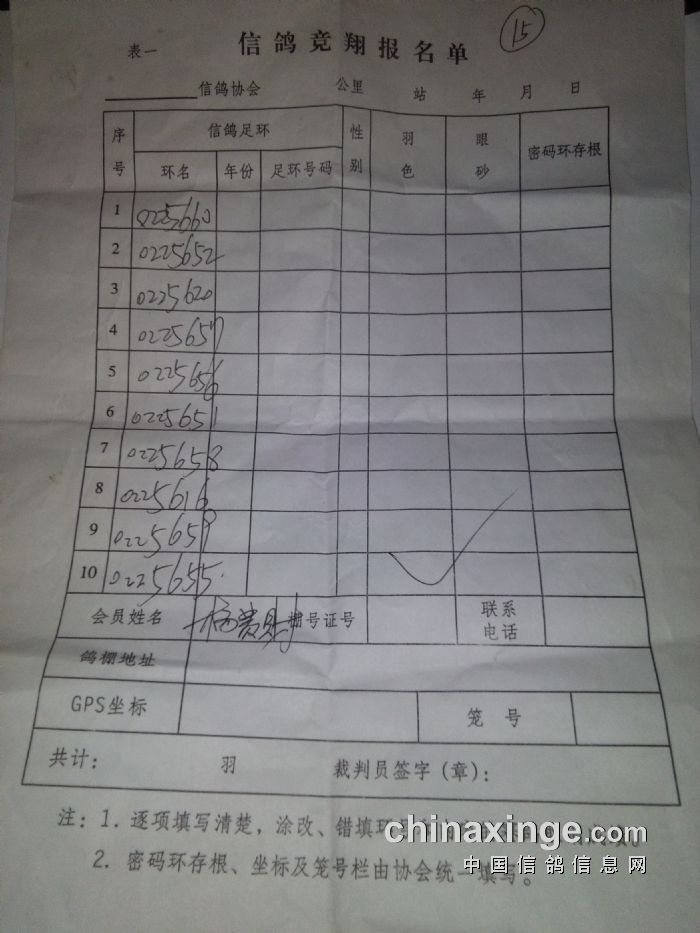 15
表一
信鸽竞翔报名单
信鸽协会 公里 站 年 月 日
序号 信鸽足环 性别 羽色 眼砂 密码环存根
环名 年份 足环号码
1 0225660
2 0225652
3 0225620
4 0225657
5 0225656
6 0225651
7 0225658
8 0225616
9 0225659
10 0225655
会员姓名 棚号证号 联系电话
鸽棚地址
GPS坐标 笼号
共计： 羽 裁判员签字（章）：
注：1. 逐项填写清楚，涂改、错填环
2. 密码环存根、坐标及笼号栏由协会统一填写。
chinaxinge.com
中国信鸽信息网